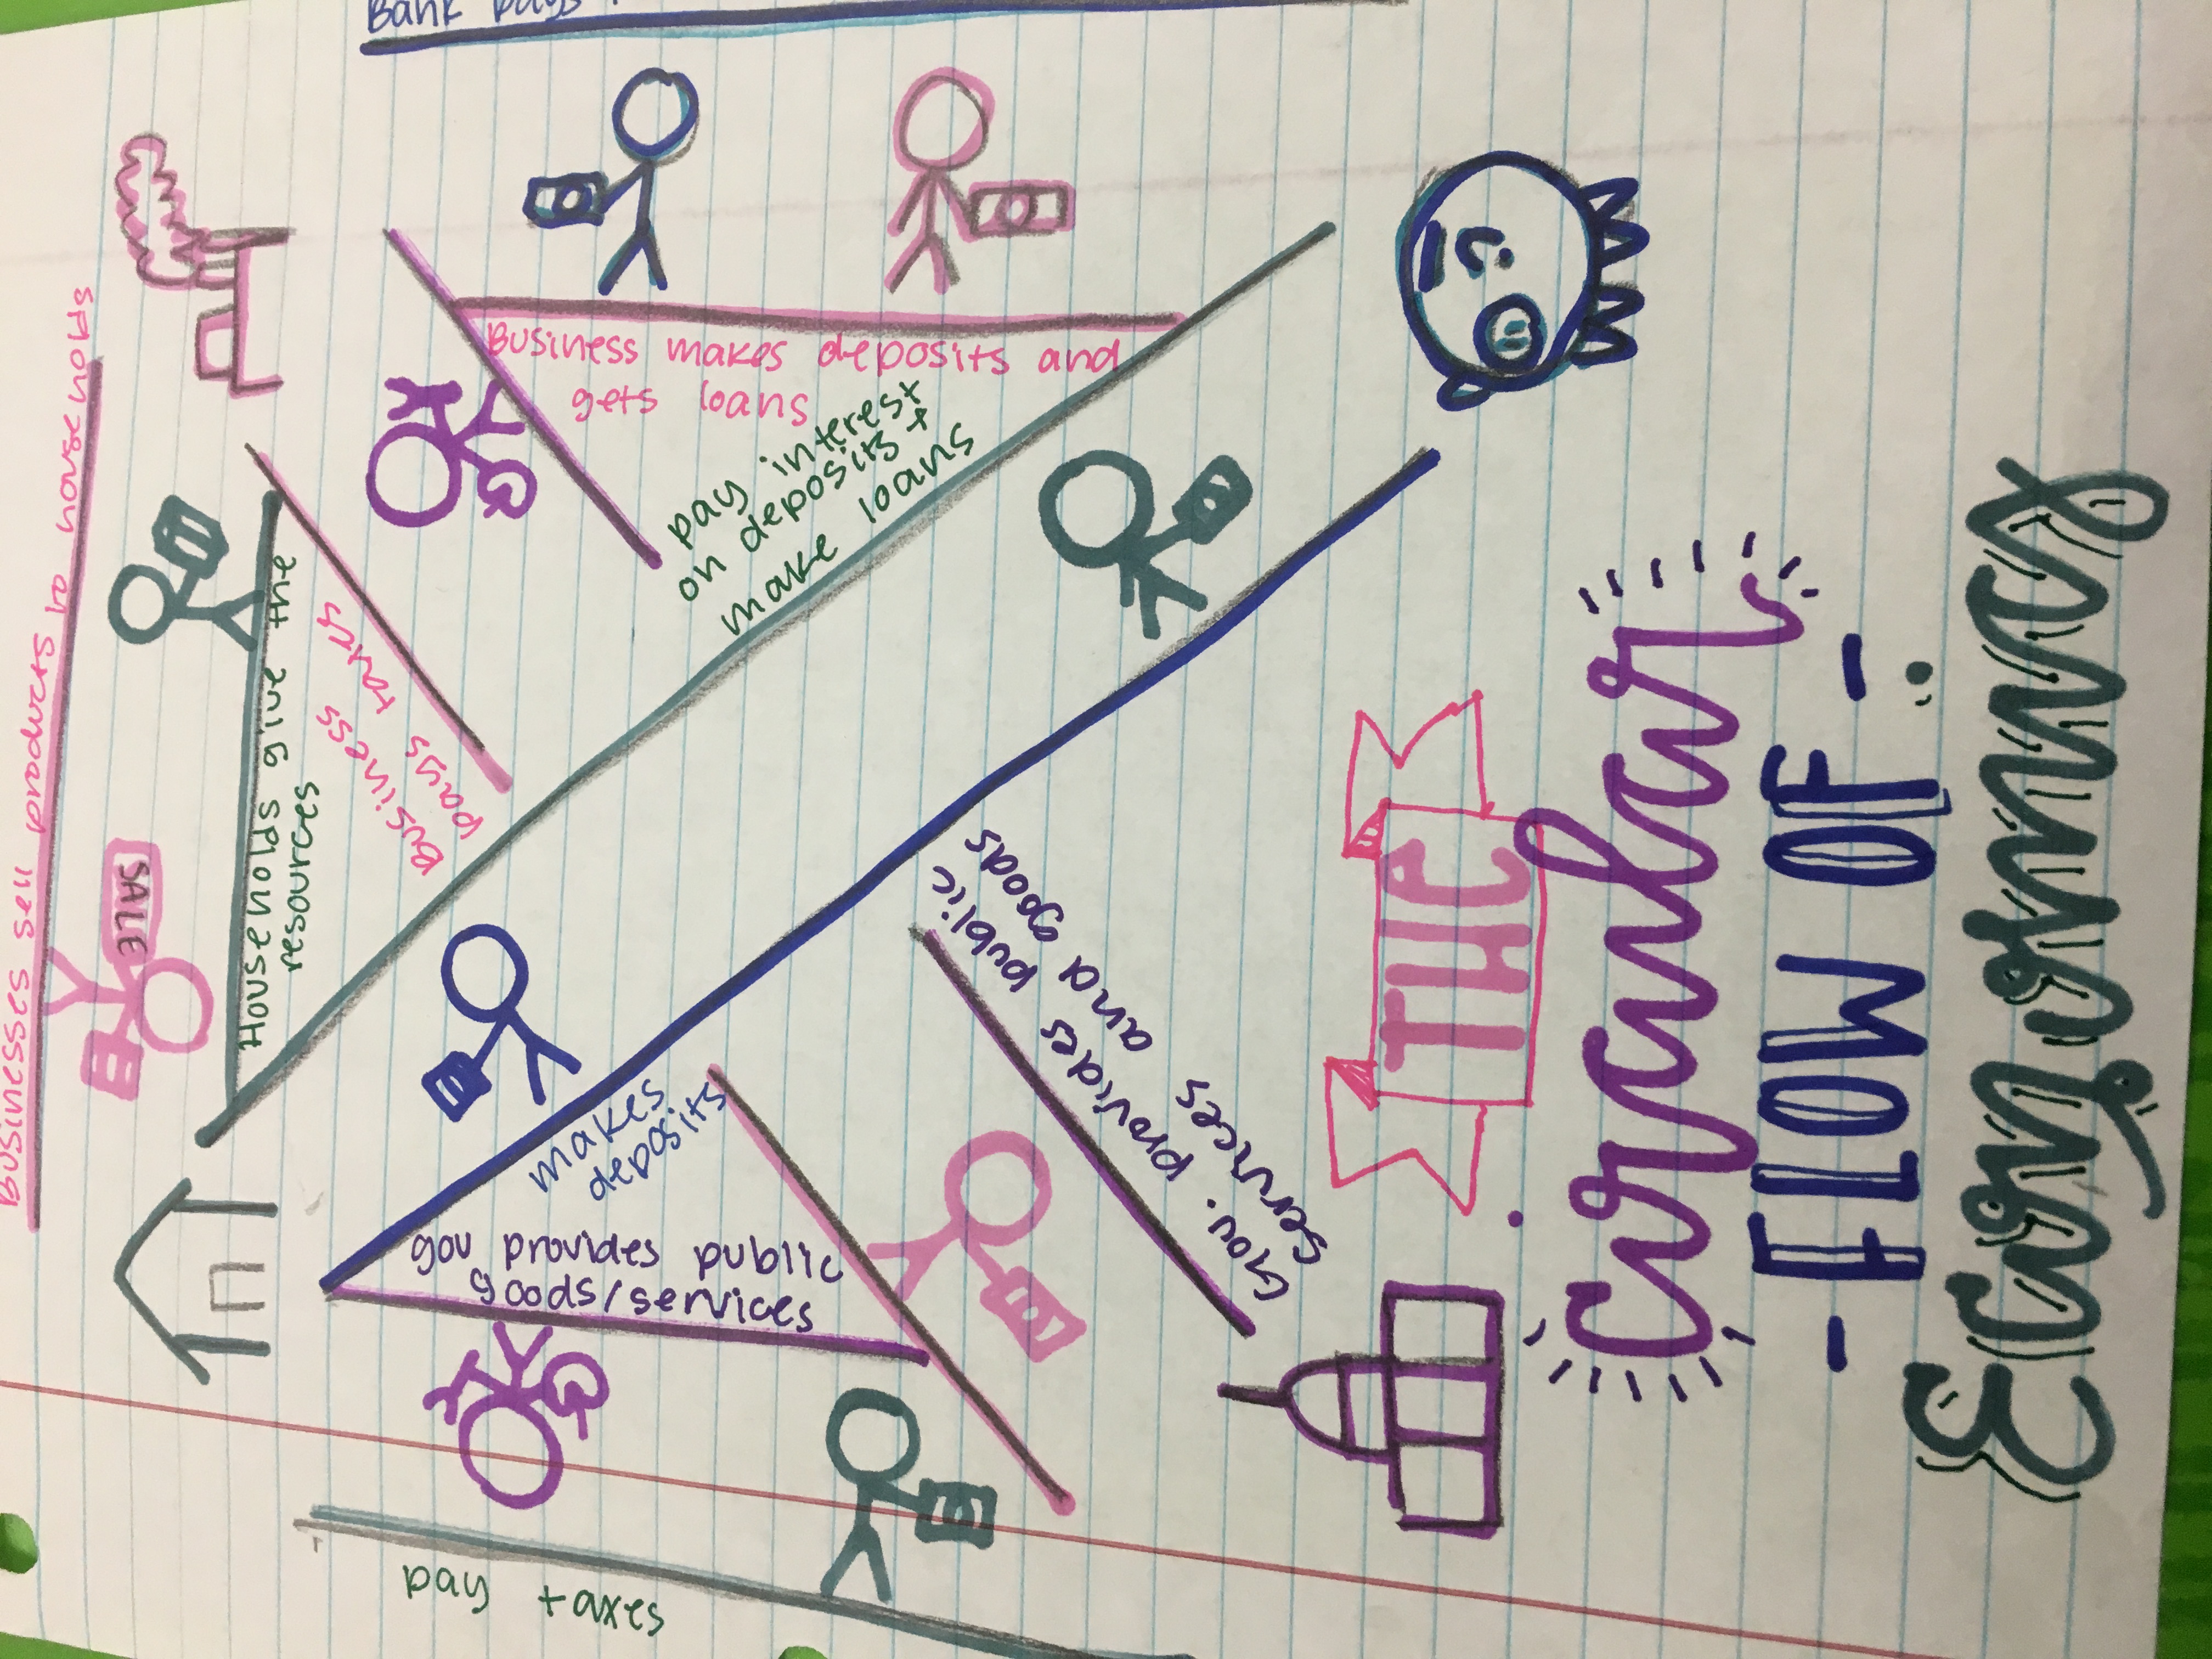 Businesses sell products to households
SALE
Households give the
resources
Business
pays taxes
pay taxes
gov provides public
goods/services
makes
deposits
Business makes deposits and
gets loans
pay interest
on deposits +
make loans
Bank pays
Gov. provides public
services and goods
THE
circular
-FLOW OF-
Economics